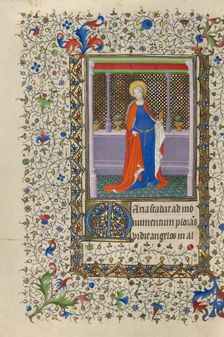 Maria stabat ad mo
numentum ploras
vidit angelos in al